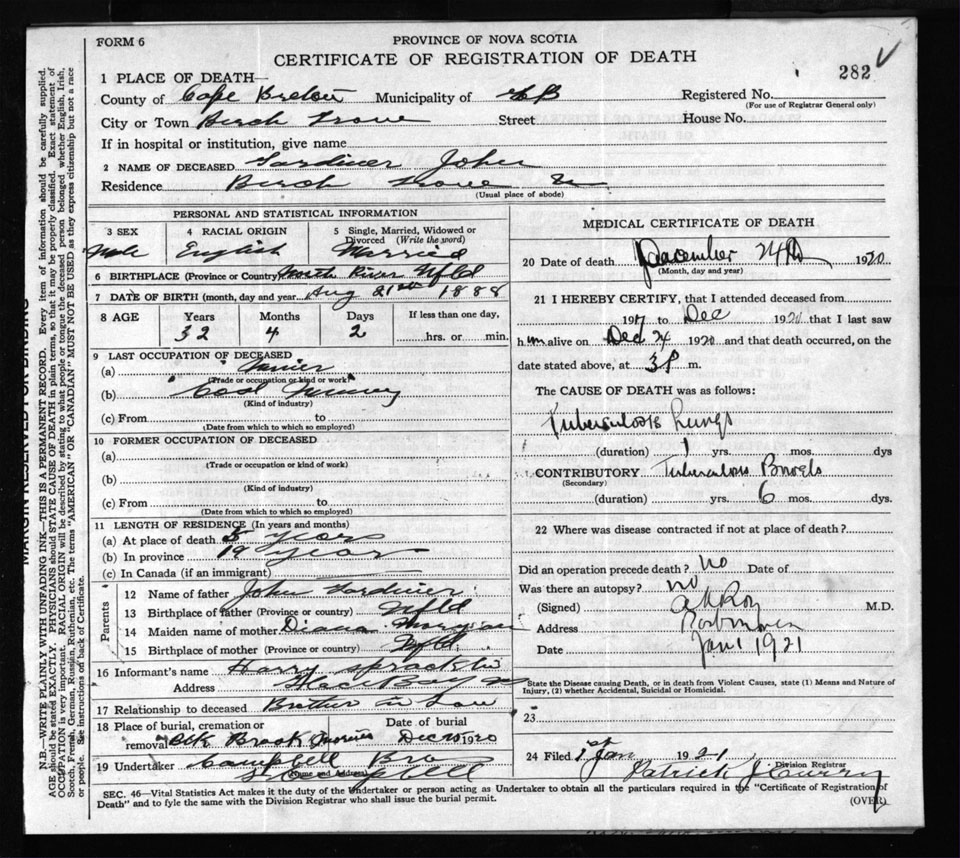 FORM 6
PROVINCE OF NOVA SCOTIA
CERTIFICATE OF REGISTRATION OF DEATH
282
1 PLACE OF DEATH—
County of Cape Breton Municipality of CB Registered No.
(For use of Registrar General only)
City or Town Birch Grove Street House No.
If in hospital or institution, give name
2 NAME OF DECEASED Gardiner John
Residence Birch Grove
(Usual place of abode)
PERSONAL AND STATISTICAL INFORMATION
3 SEX 4 RACIAL ORIGIN 5 Single, Married, Widowed or Divorced (Write the word)
Male English Married
6 BIRTHPLACE (Province or Country) North River Nfld
7 DATE OF BIRTH (month, day and year) Aug 21st 1888
8 AGE Years Months Days If less than one day,
32 4 2 hrs. or min.
9 LAST OCCUPATION OF DECEASED
(a)
(Trade or occupation or kind of work)
(b) Coal
(Kind of industry)
(c) From to
(Date from which to which so employed)
10 FORMER OCCUPATION OF DECEASED
(a)
(Trade or occupation or kind of work)
(b)
(Kind of industry)
(c) From to
(Date from which to which so employed)
11 LENGTH OF RESIDENCE (In years and months)
(a) At place of death 5 years
(b) In province 19 years
(c) In Canada (if an immigrant)
Parents
12 Name of father John Gardiner
13 Birthplace of father (Province or country) Nfld
14 Maiden name of mother Diana Morgan
15 Birthplace of mother (Province or country) Nfld
16 Informant's name Harry
Address Glace Bay
17 Relationship to deceased Brother in Law
18 Place of burial, cremation or removal Brook Date of burial Dec 25 1920
19 Undertaker Campbell Bro
(Name and Address)
MEDICAL CERTIFICATE OF DEATH
20 Date of death December 24th 1920
(Month, day and year)
21 I HEREBY CERTIFY, that I attended deceased from
191 to Dec 1920 that I last saw
him alive on Dec 24 1920 and that death occurred, on the
date stated above, at 3 P m.
The CAUSE OF DEATH was as follows:
Tuberculosis Lungs
(duration) 1 yrs. mos. dys
CONTRIBUTORY Tuberculosis Bowels
(Secondary)
(duration) yrs. 6 mos. dys.
22 Where was disease contracted if not at place of death?
Did an operation precede death? no Date of
Was there an autopsy? no
(Signed) Roy M.D.
Address
Date Jan 1 1921
State the Disease causing Death, or in death from Violent Causes, state (1) Means and Nature of
Injury, (2) whether Accidental, Suicidal or Homicidal.
23
24 Filed 1st Jan 1921
Patrick J Curry
Division Registrar
SEC. 46—Vital Statistics Act makes it the duty of the Undertaker or person acting as Undertaker to obtain all the particulars required in the "Certificate of Registration of
Death" and to fyle the same with the Division Registrar who shall issue the burial permit.
(OVER)
MARGIN RESERVED FOR BINDING
N.B.—WRITE PLAINLY WITH UNFADING INK—THIS IS A PERMANENT RECORD. Every item of information should be carefully supplied.
AGE should be stated EXACTLY. PHYSICIANS should STATE CAUSE OF DEATH in plain terms, so that it may be properly classified. Exact statement of
OCCUPATION is very important. RACIAL ORIGIN will be described by stating to what people or tongue the deceased person belonged whether English, Irish,
Scotch, French, German, Russian, Ruthenian, etc. The terms "AMERICAN" OR "CANADIAN" MUST NOT BE USED as they express citizenship but not a race
or people. See instructions on back of Certificate.